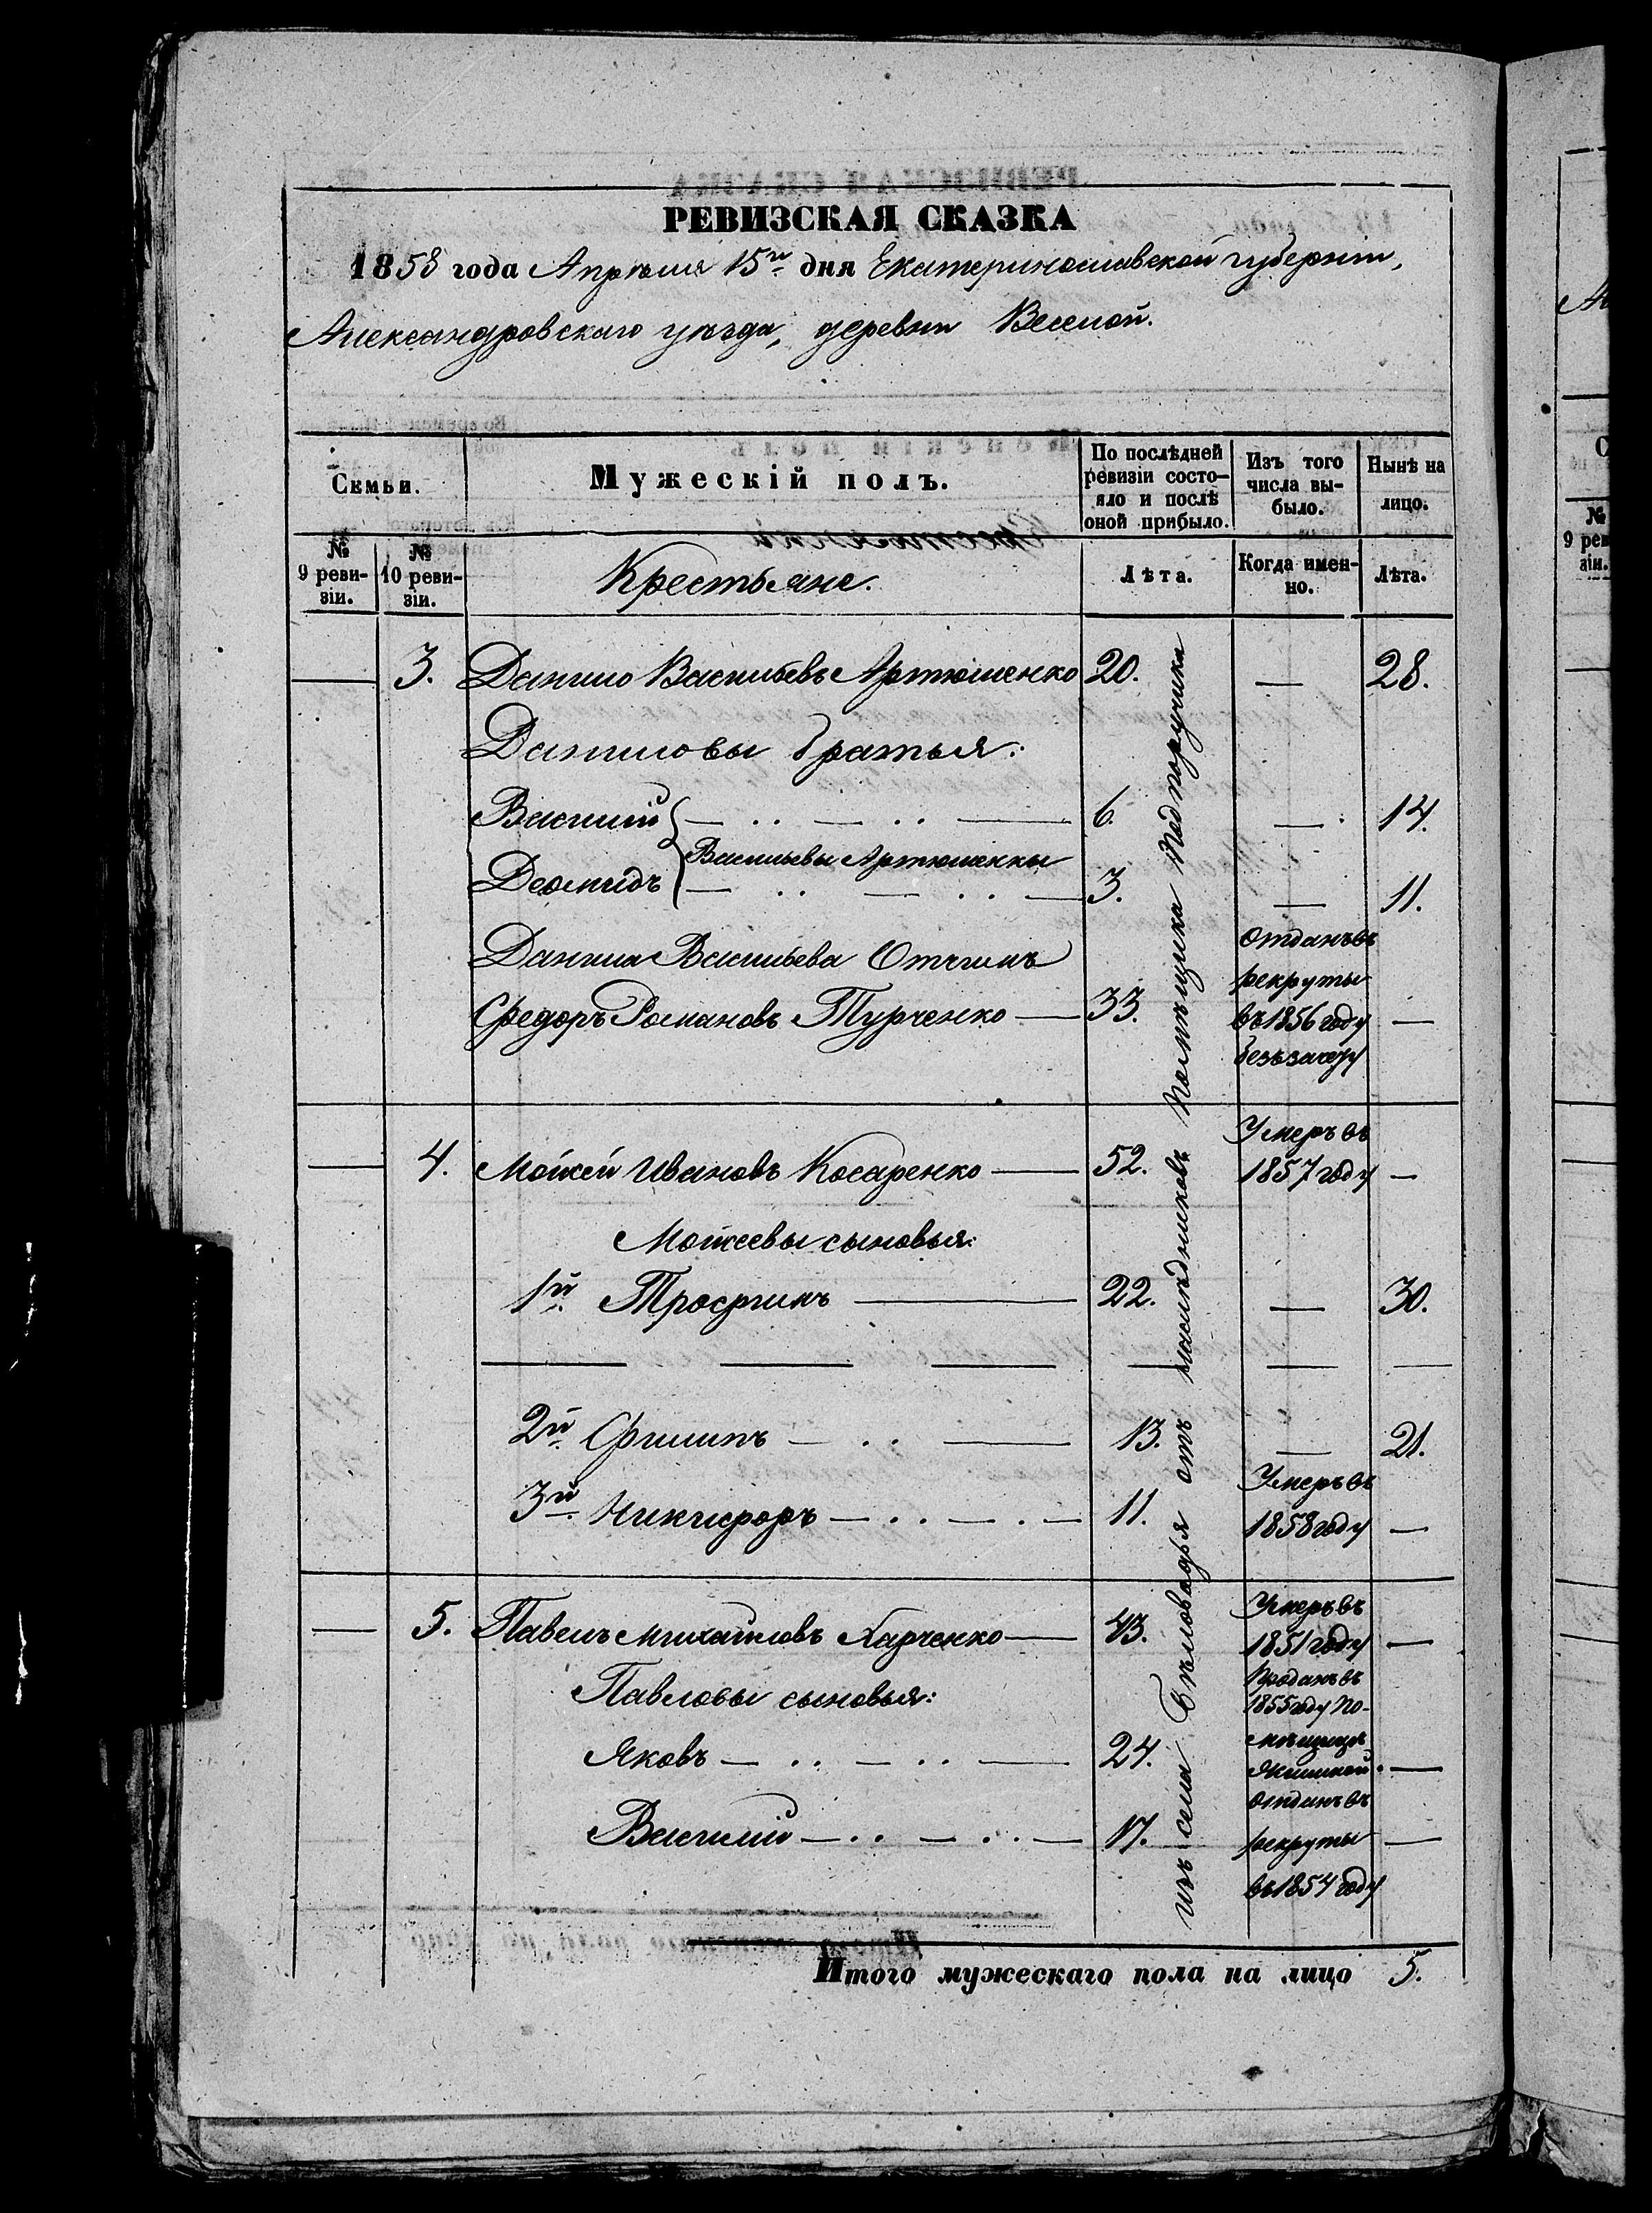 РЕВИЗСКАЯ СКАЗКА
1858 года Апрѣля 15го дня Екатеринославской губерніи,
Александровскаго уѣзда, деревни Веселой.
Семьи.
Мужескій полъ.
По послѣдней
ревизіи состо-
яло и послѣ
оной прибыло.
Изъ того
числа вы-
было.
Нынѣ на
лицо.
№
9 реви-
зіи.
№
10 реви-
зіи.
Крестьяне.
Лѣта.
Когда имен-
но.
Лѣта.
— 3. Данило Васильевъ Артюшенко 20. — 28.
Даниловы братья:
Василій — . . — . . — 6. — 14.
Васильевы Артюшенки
Деомидъ — . . — . . — 3. — 11.
Данила Васильева Отчимъ
Федоръ Романовъ Турченко — 33.
Отданъ въ
рекруты
въ 1856 году —
безъ зачету
— 4. Мойсей Ивановъ Косаренко — 52.
Умеръ въ
1857 году —
Мойсеевы сыновья:
1й Трофимъ — 22. — 30.
2й Филипъ — . . — 13. — 21.
3й Никифоръ — . . — . — 11.
Умеръ въ
1858 году —
— 5. Павелъ Михайловъ Харченко — 43.
Умеръ въ
1851 году —
Павловы сыновья:
Яковъ — . . — . . — 24.
Проданъ въ
1855 году по-
мѣщицѣ
—
Василій — . . — . . — 17.
отданъ въ
рекруты —
въ 1854 году
изъ села Бѣловодья отъ наслѣдниковъ Помѣщика Подпоручика
Итого мужескаго пола на лицо 5.
№
9 реви
зіи.